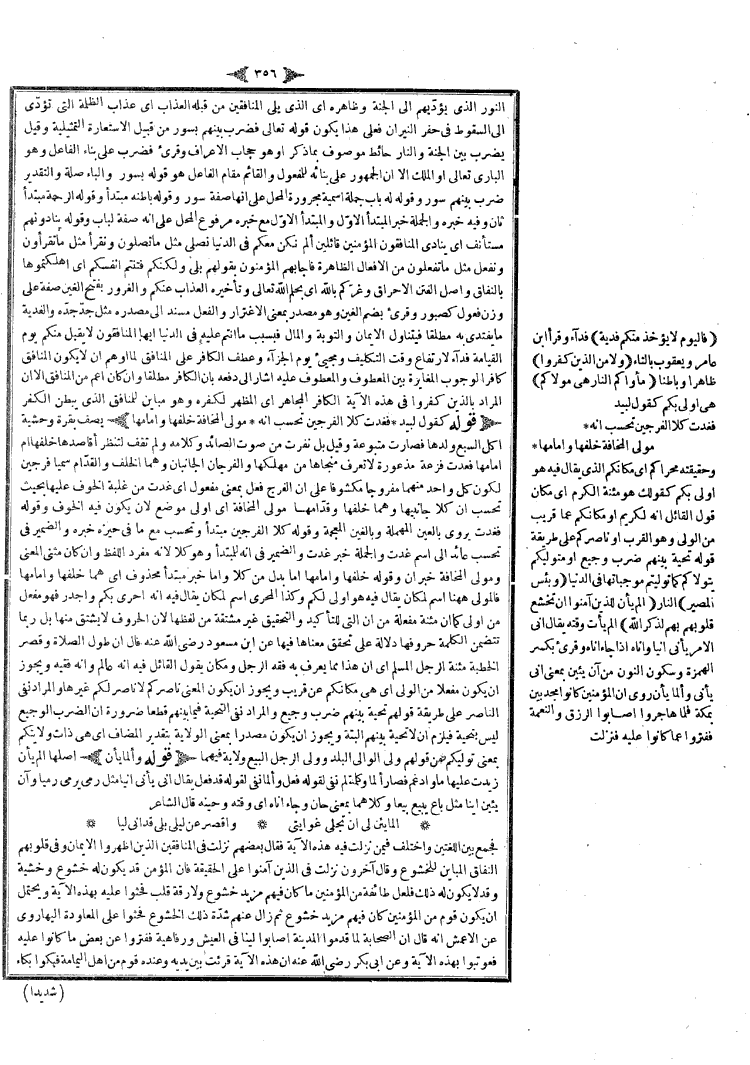 ٣٥٦
النور الذى يؤديهم الى الجنة وظاهره اى الذى يلى المنافقين من قبله العذاب اى عذاب الظلة التى تؤدى
الى السقوط فى حفر النيران فعلى هذا يكون قوله تعالى فضرب بينهم بسور من قبيل الاستعارة التمثيلية وقيل
يضرب بين الجنة والنار حائط موصوف بماذكر او هو حجاب الاعراف وقرئ فضرب على بناء الفاعل وهو
البارى تعالى او الملك الا ان الجمهور على بنائه للمفعول والقائم مقام الفاعل هو قوله بسور والباء صلة والتقدير
ضرب بينهم سور وقوله له باب جملة اسمية مجرورة المحل على انها صفة سور وقوله باطنه مبتدأ وقوله الرحمة مبتدأ
ثان وفيه خبره والجملة خبر المبتدأ الاول والمبتدأ الاول مع خبره مرفوع المحل على انه صفة لباب وقوله ينادونهم
مستأنف اى ينادى المنافقون المؤمنين قائلين ألم نكن معكم فى الدنيا نصلى مثل ماتصلون ونقرأ مثل ماتقرأون
ونفعل مثل ماتفعلون من الافعال الظاهرة فاجابهم المؤمنون بقولهم بلى ولكنكم فتنتم انفسكم اى اهلكتموها
بالنفاق واصل الفتن الاحراق وغركم بالله اى بحلم الله تعالى وتأخيره العذاب عنكم والغرور بفتح الغين صفة على
وزن فعول كصبور وقرئ بضم الغين وهو مصدر بمعنى الاغترار والفعل مسند الى مصدره مثل جد جده والفدية
مايفتدى به مطلقا فيتناول الايمان والتوبة والمال فبسبب ماانتم عليه فى الدنيا ايها المنافقون لايقبل منكم يوم
القيامة فداء لارتفاع وقت التكليف ومجيئ يوم الجزاء وعطف الكافر على المنافق لما اوهم ان لايكون المنافق
كافرا لوجوب المغايرة بين المعطوف والمعطوف عليه اشار الى دفعه بان الكافر مطلقا وان كان اعم من المنافق الا ان
المراد بالذين كفروا فى هذه الآية الكافر المجاهر اى المظهر لكفره وهو مباين للمنافق الذى يبطن الكفر
قوله كقول لبيد * فغدت كلا الفرجين تحسب انه * مولى المخافة خلفها وامامها يصف بقرة وحشية
اكل السبع ولدها فصارت متبوعة وقيل بل نفرت من صوت الصائد وكلامه ولم تقف لتنظر أقاصدها خلفها ام
امامها فغدت فزعة مذعورة لاتعرف منجاها من مهلكها والفرجان الجانبان وهما الخلف والقدام سميا فرجين
لكون كل واحد منهما مفروجا مكشوفا على ان الفرج فعل بمعنى مفعول اى غدت من غلبة الخوف عليها بحيث
تحسب ان كلا جانبيها وهما خلفها وقدامها مولى المخافة اى اولى موضع لان يكون فيه الخوف وقوله
فغدت يروى بالعين المهملة وبالغين المعجمة وقوله كلا الفرجين مبتدأ وتحسب مع ما فى حيزه خبره والضمير فى
تحسب عائد الى اسم غدت والجملة خبر غدت والضمير فى انه للمبتدأ وهو كلا لانه مفرد اللفظ وان كان مثنى المعنى
ومولى المخافة خبر ان وقوله خلفها وامامها اما بدل من كلا واما خبر مبتدأ محذوف اى هما خلفها وامامها
فالمولى ههنا اسم لمكان يقال فيه هو اولى لكم وكذا المحرى اسم لمكان يقال فيه انه احرى بكم واجدر فهو مفعل
من اولى كما ان مئنة مفعلة من ان التى للتأكيد والتحقيق غير مشتقة من لفظها لان الحروف لايشتق منها بل ربما
تتضمن الكلمة حروفها دلالة على تحقق معناها فيها عن ابن مسعود رضى الله عنه قال ان طول الصلاة وقصر
الخطبة مئنة الرجل المسلم اى ان هذا مما يعرف به فقه الرجل ومكان يقول القائل فيه انه عالم وانه فقيه ويجوز
ان يكون مفعلا من الولى اى هى مكانكم عن قريب ويجوز ان يكون المعنى ناصركم لا ناصر لكم غيرها والمراد نفى
الناصر على طريقة قولهم تحية بينهم ضرب وجيع والمراد نفى التحية فيما بينهم قطعا ضرورة ان الضرب الوجيع
ليس بتحية فيلزم ان لاتحية بينهم البتة ويجوز ان يكون مصدرا بمعنى الولاية بتقدير المضاف اى هى ذات ولايتكم
بمعنى توليكم من قولهم ولى الوالى البلد وولى الرجل البيع ولاية فيهما قوله وألما يأن اصلها الم يأن
زيدت عليها ما وادغم فصار ألما وكلمة لم نفى لقوله فعل وألما نفى لقوله قد فعل يقال انى يأنى انيا مثل رمى يرمى رميا وآن
يئين اينا مثل باع يبيع بيعا وكلاهما بمعنى حان وجاء اناه اى وقته وحينه قال الشاعر
* الما يئن لى ان تجلى غوايتى * واقصر عن ليلى بلى قد انى ليا *
فجمع بين اللغتين واختلف فيمن نزلت فيه هذه الآية فقال بعضهم نزلت فى المنافقين الذين اظهروا الايمان وفى قلوبهم
النفاق المباين للخشوع وقال آخرون نزلت فى الذين آمنوا على الحقيقة فان المؤمن قد يكون له خشوع وخشية
وقد لايكون له ذلك فلعل طائفة من المؤمنين ما كان فيهم مزيد خشوع ولا رقة قلب فحثوا عليه بهذه الآية ويحتمل
ان يكون قوم من المؤمنين كان فيهم مزيد خشوع ثم زال عنهم شدة ذلك الخشوع فحثوا على المعاودة اليها روى
عن الاعمش انه قال ان الصحابة لما قدموا المدينة اصابوا لينا فى العيش ورفاهية ففتروا عن بعض ما كانوا عليه
فعوتبوا بهذه الآية وعن ابى بكر رضى الله عنه ان هذه الآية قرئت بين يديه وعنده قوم من اهل اليمامة فبكوا بكاء
(شديدا)
(فاليوم لايؤخذ منكم فدية) فداء وقرأ ابن
عامر ويعقوب بالتاء (ولا من الذين كفروا)
ظاهرا وباطنا (مأواكم النار هى مولاكم)
هى اولى بكم كقول لبيد
فغدت كلا الفرجين تحسب انه *
مولى المخافة خلفها وامامها *
وحقيقته محراكم اى مكانكم الذى يقال فيه هو
اولى بكم كقولك هو مئنة الكرم اى مكان
قول القائل انه لكريم او مكانكم عما قريب
من الولى وهو القرب او ناصركم على طريقة
قوله تحية بينهم ضرب وجيع او متوليكم
يتولاكم كما توليتم موجباتها فى الدنيا (وبئس
المصير) النار (الم يأن للذين آمنوا ان تخشع
قلوبهم لذكر الله) الم يأت وقته يقال انى
الامر يأنى انيا واناء اذا جاء اناه وقرئ بكسر
الهمزة وسكون النون من آن يئين بمعنى انى
يأنى وألما يأن روى ان المؤمنين كانوا مجدبين
بمكة فلما هاجروا اصابوا الرزق والنعمة
ففتروا عما كانوا عليه فنزلت